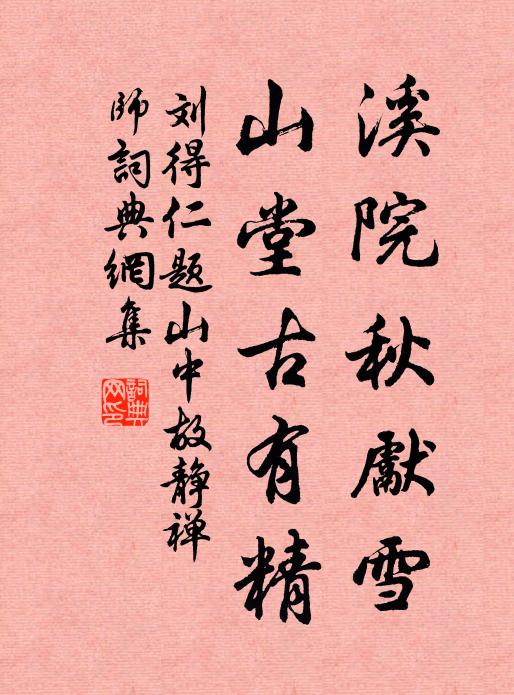 溪院秋獻雪
山堂古有精
刘得仁题山中故静禅
師詞典網集
詞典网印